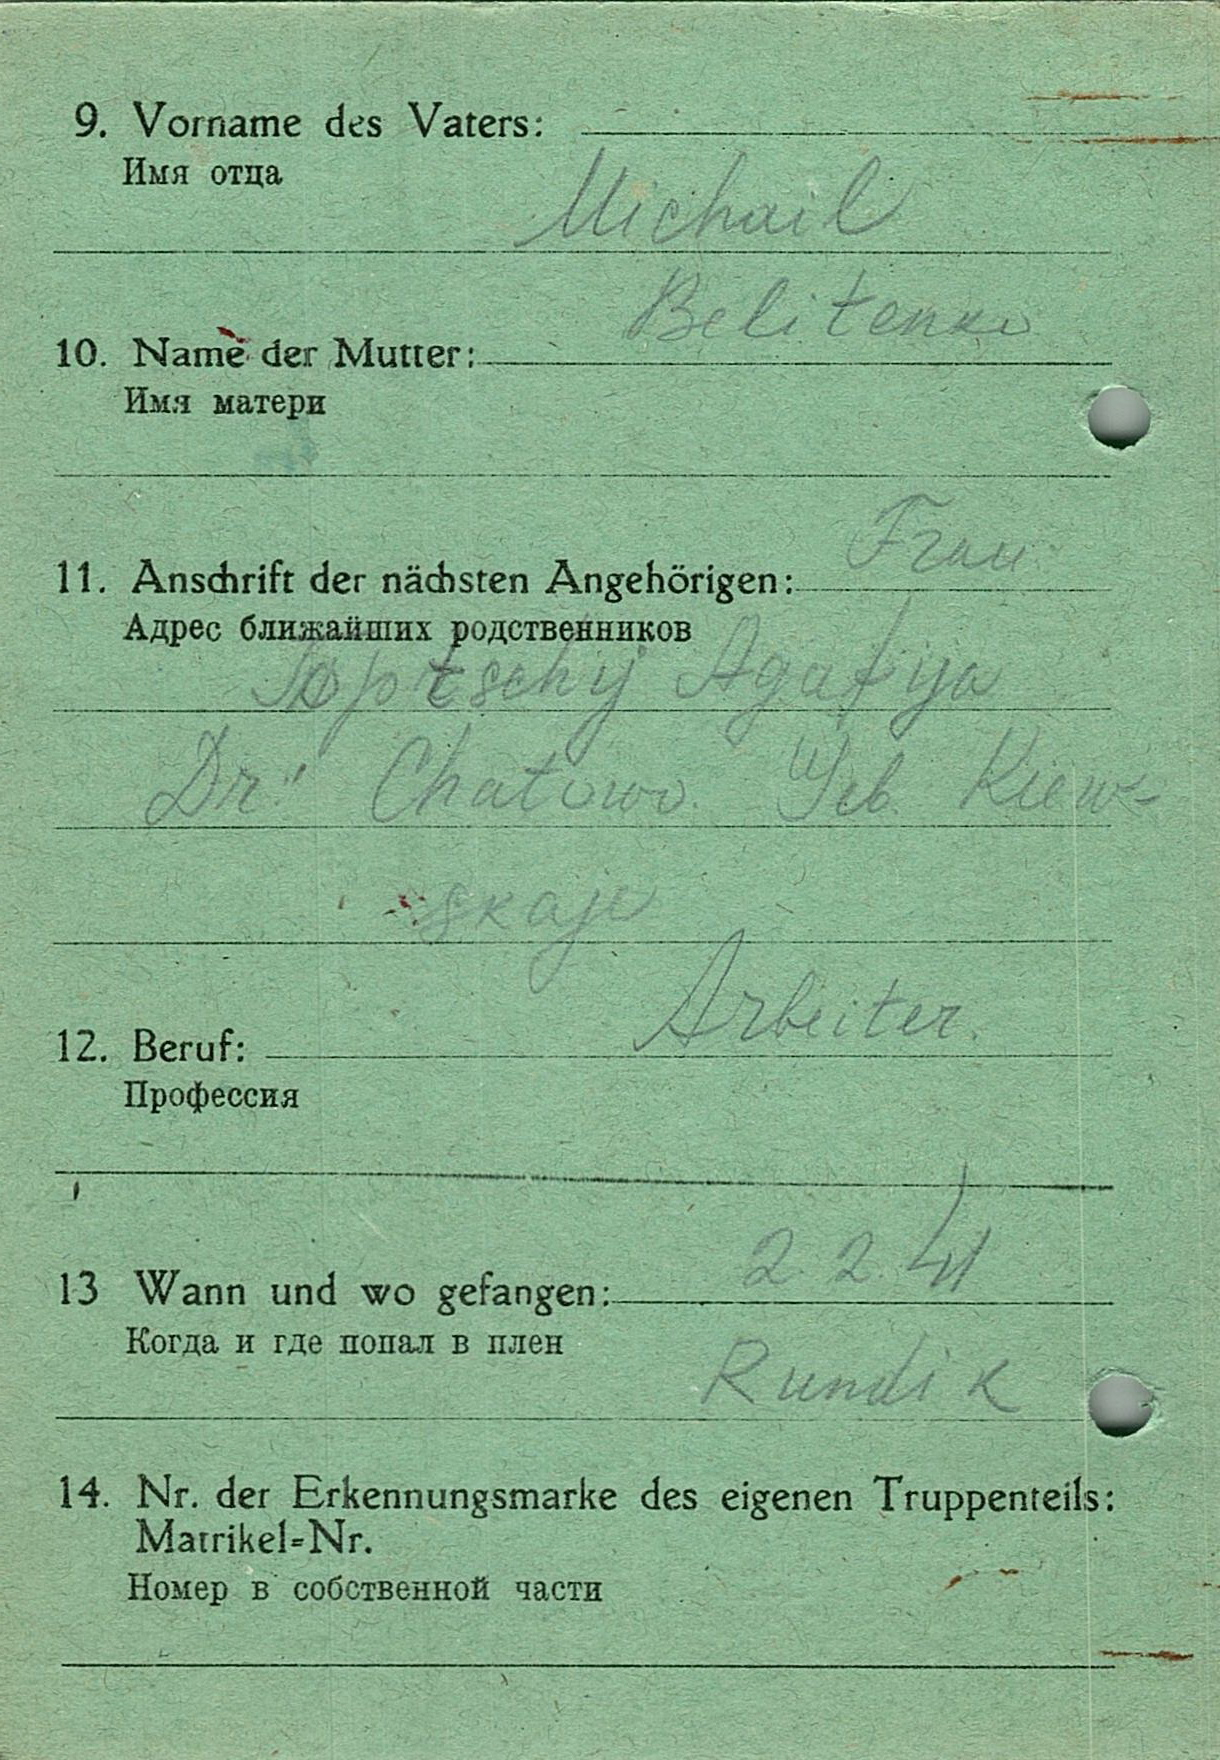 9. Vorname des Vaters:
Имя отца
Michail
Belitenko
10. Name der Mutter:
Имя матери
Frau
11. Anschrift der nächsten Angehörigen:
Адрес ближайших родственников
Agafija
Dr. Chatowo Geb. Kiew-
skaje
Arbeiter.
12. Beruf:
Профессия
2. 2. 41
13 Wann und wo gefangen:
Когда и где попал в плен
Rundik
14. Nr. der Erkennungsmarke des eigenen Truppenteils:
Matrikel=Nr.
Номер в собственной части